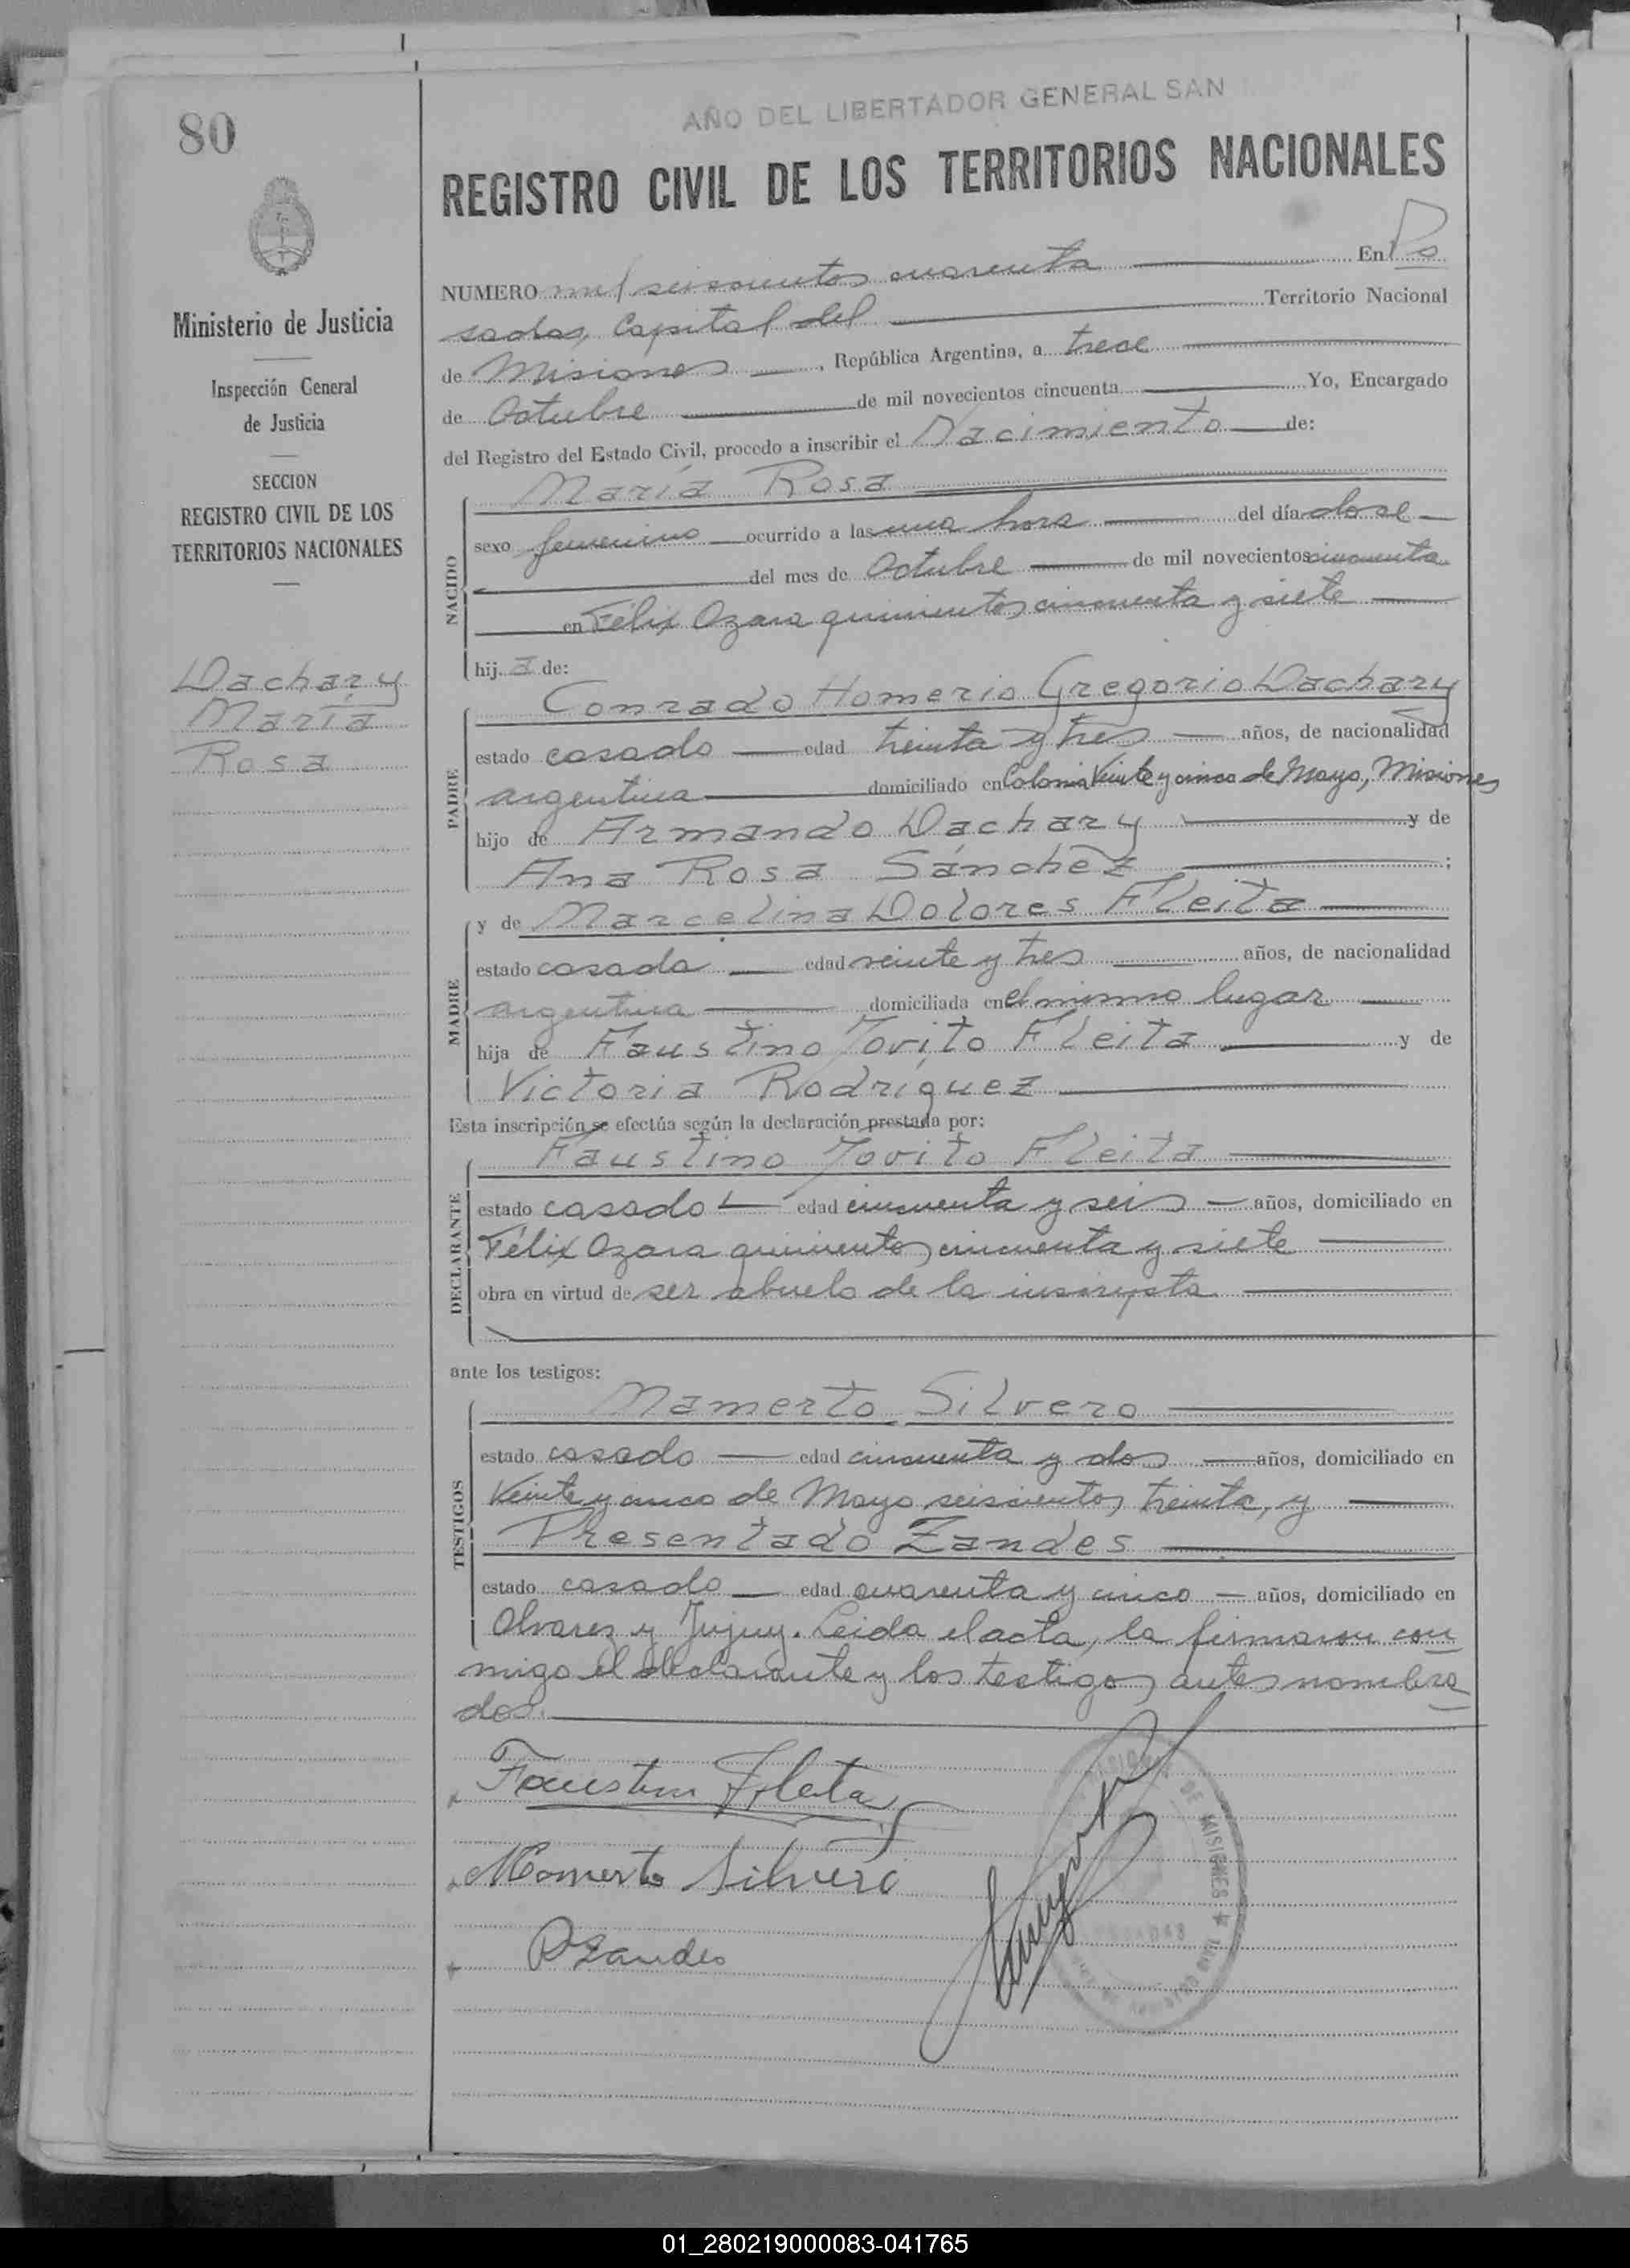 80
Ministerio de Justicia
Inspección General
de Justicia
SECCION
REGISTRO CIVIL DE LOS
TERRITORIOS NACIONALES
Dachary
María
Rosa
AÑO DEL LIBERTADOR GENERAL SAN
REGISTRO CIVIL DE LOS TERRITORIOS NACIONALES
NUMERO mil seiscientos cuarenta En Po
sadas, Capital del Territorio Nacional
de Misiones, República Argentina, a trece
de Octubre de mil novecientos cincuenta Yo, Encargado
del Registro del Estado Civil, procedo a inscribir el Nacimiento de:
María Rosa
NACIDO
sexo femenino ocurrido a las una hora del día dose
del mes de Octubre de mil novecientos cincuenta
en Félix Ozara quinientos cincuenta y siete
hij a de:
Conrado Homerio Gregorio Dachary
PADRE
estado casado edad treinta y tres años, de nacionalidad
argentina domiciliado en Colonia Veinte y cinco de Mayo, Misiones
hijo de Armando Dachary y de
Ana Rosa Sánchez ;
y de Marcelina Dolores Fleita
MADRE
estado casada edad veinte y tres años, de nacionalidad
argentina domiciliada en el mismo lugar
hija de Faustino Jovito Fleita y de
Victoria Rodríguez
Esta inscripción se efectúa según la declaración prestada por:
Faustino Jovito Fleita
DECLARANTE
estado casado edad cincuenta y seis años, domiciliado en
Félix Ozara quinientos cincuenta y siete
obra en virtud de ser abuelo de la inscripta
ante los testigos:
Mamerto Silvero
TESTIGOS
estado casado edad cincuenta y dos años, domiciliado en
Veinte y cinco de Mayo seiscientos treinta, y
Presentado Zandes
estado casado edad cuarenta y cinco años, domiciliado en
Alvarez y Jujuy. Leida el acta, la firmaron con
migo el declarante y los testigos antes nombra
dos.
Faustino Fleita
Mamerto Silvero
P Zandes
DE MISIONES
01_280219000083-041765